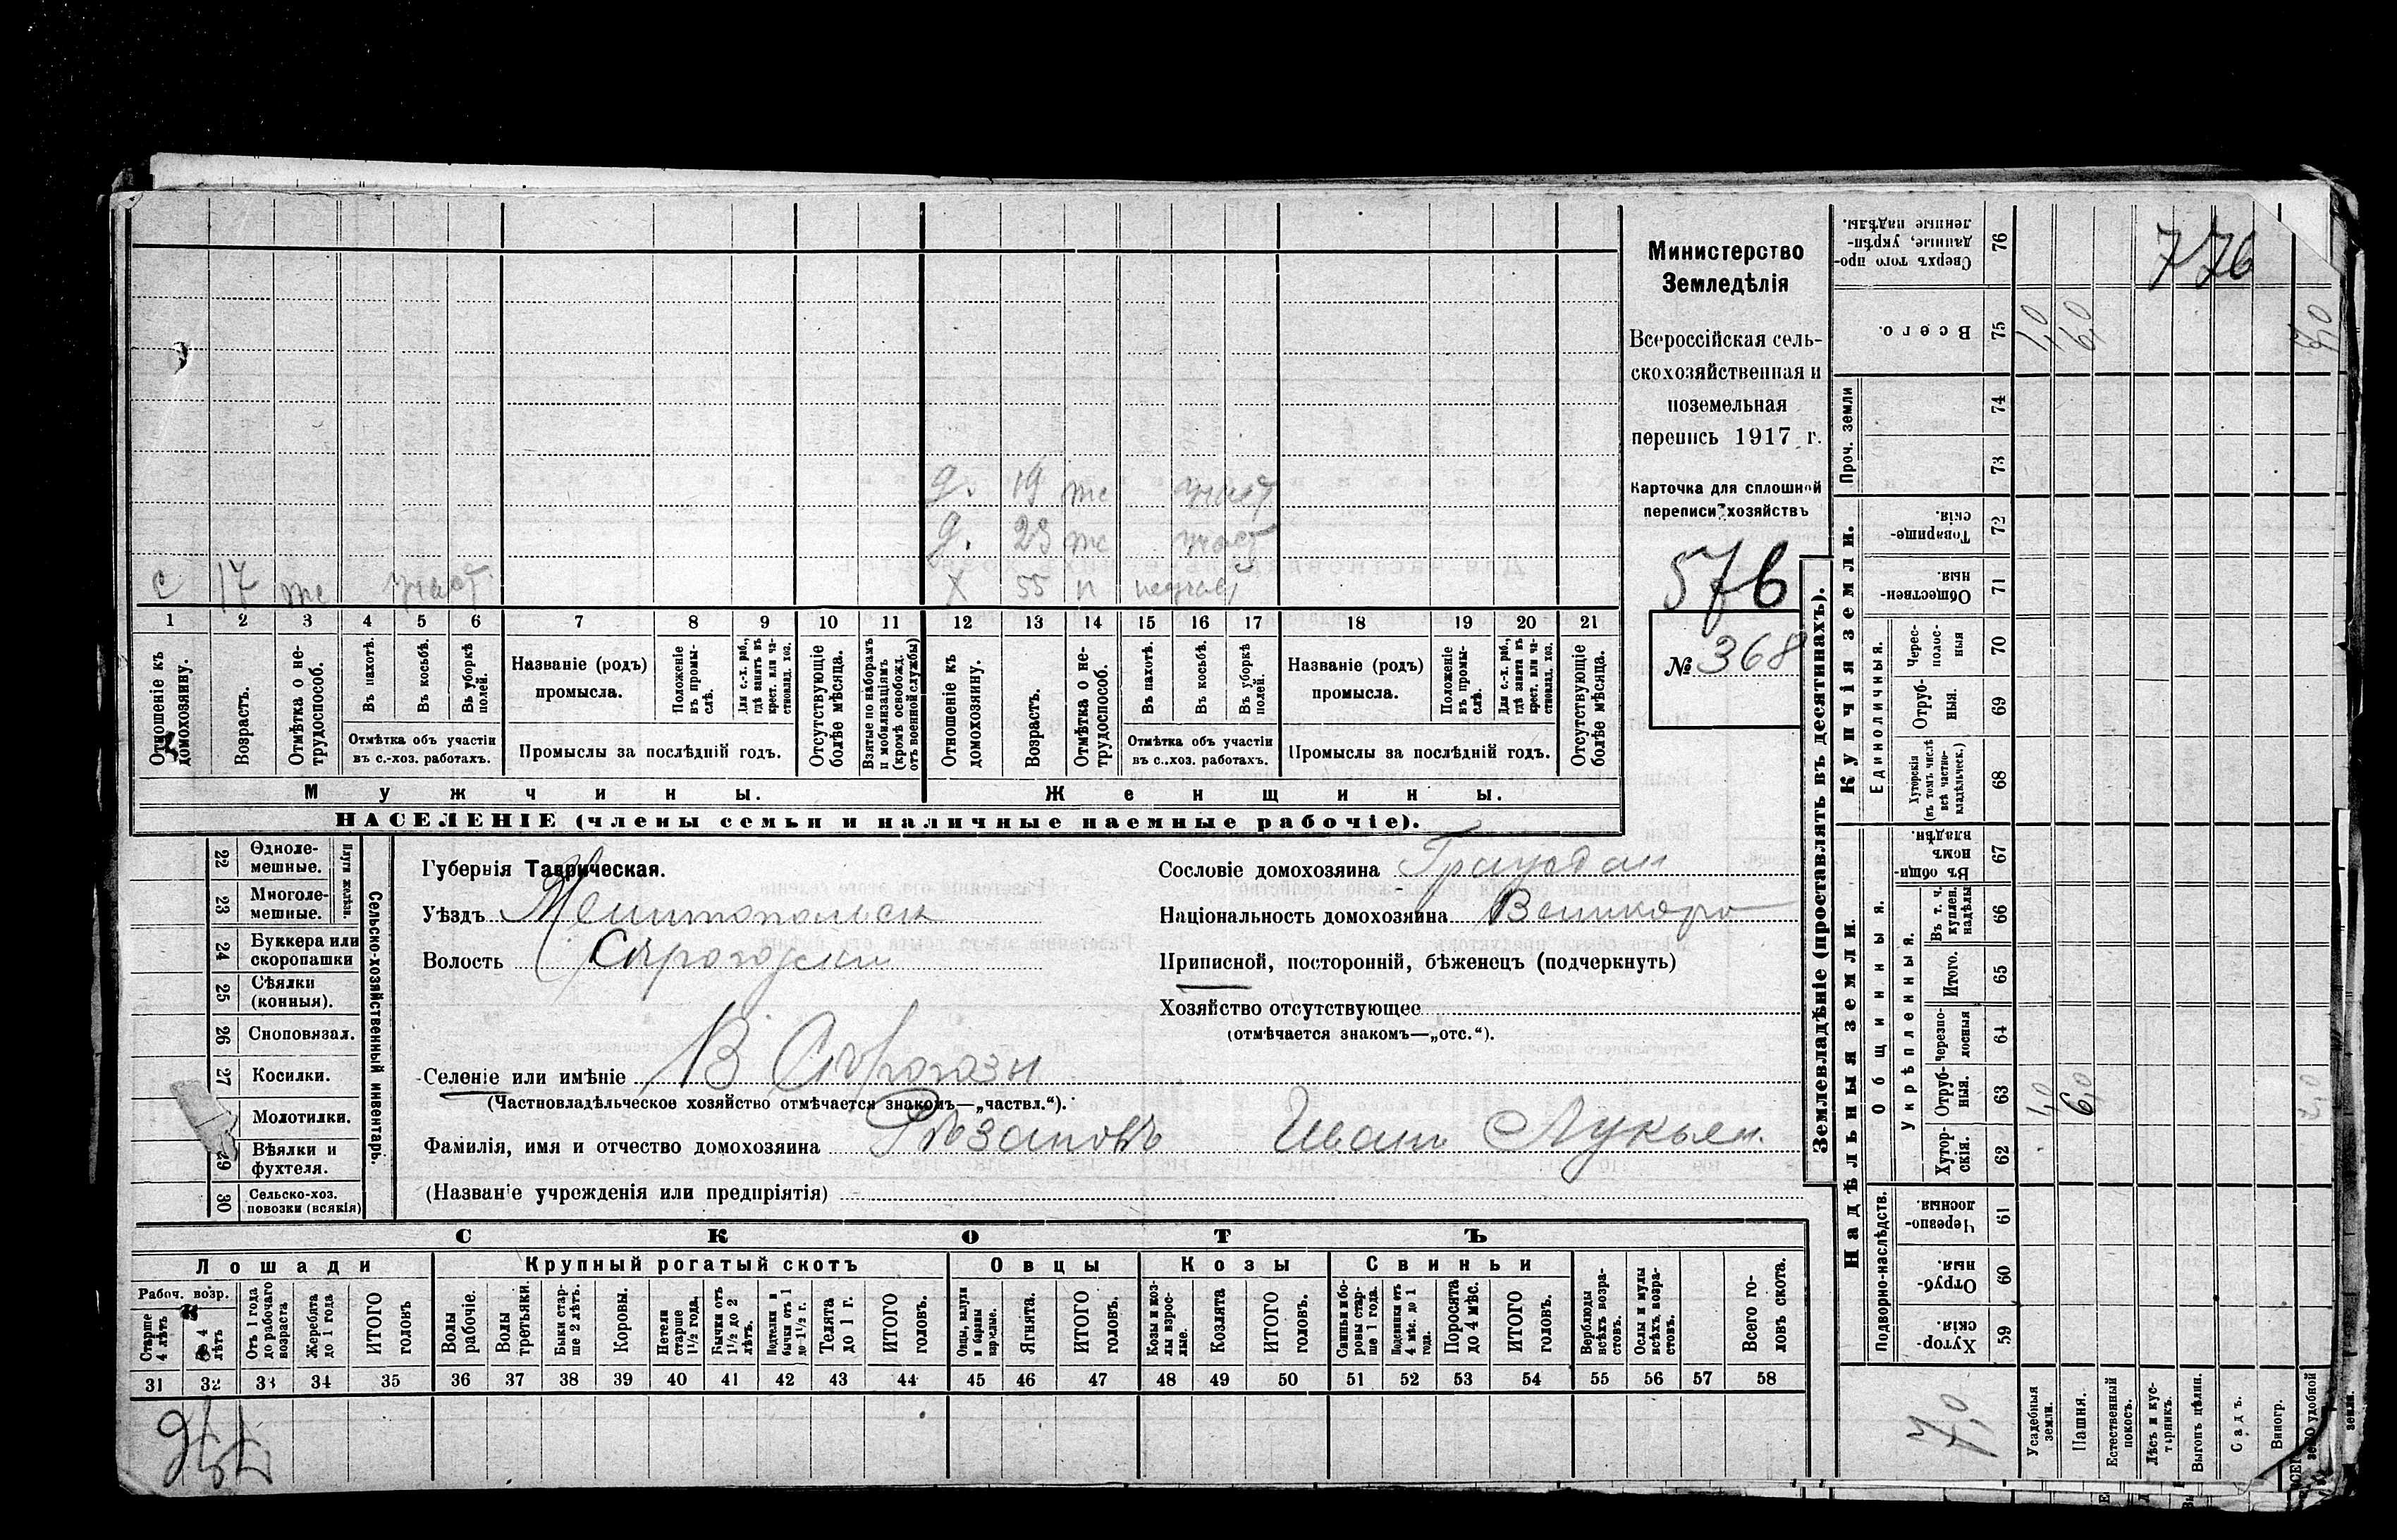 776
Министерство
Земледѣлія
Всероссійская сель-
скохозяйственная и
поземельная
перепись 1917 г.
Карточка для сплошной
переписи хозяйствъ
576
№ 368
д. 19 участ
д. 23 участ
с 17 участ
Х 55 п неучаст
1 2 3 4 5 6 7 8 9 10 11 12 13 14 15 16 17 18 19 20 21
Отношеніе къ домохозяину.
Возрастъ.
Отмѣтка о не-трудоспособ.
Въ пахотѣ.
Въ косьбѣ.
Въ уборкѣ полей.
Отмѣтка объ участіи
въ с.-хоз. работахъ.
Названіе (родъ)
промысла.
Положеніе въ промы-слѣ.
Для с.-х. раб., гдѣ занятъ въ крест. или ча-стновлад. хоз.
Промыслы за послѣдній годъ.
Отсутствующіе болѣе мѣсяца.
Взятые по наборамъ и мобилизаціямъ (кромѣ освобожд. отъ военной службы)
Отношеніе къ домохозяину.
Возрастъ.
Отмѣтка о не-трудоспособ.
Въ пахотѣ.
Въ косьбѣ.
Въ уборкѣ полей.
Отмѣтка объ участіи
въ с.-хоз. работахъ.
Названіе (родъ)
промысла.
Положеніе въ промы-слѣ.
Для с.-х. раб., гдѣ занята въ крест. или ча-стновлад. хоз.
Промыслы за послѣдній годъ.
Отсутствующіе болѣе мѣсяца.
Мужчины.
Женщины.
НАСЕЛЕНІЕ (члены семьи и наличные наемные рабочіе).
Сельско-хозяйственный инвентарь.
Плуги желѣзн.
22 Однолемешные.
23 Многолемешные.
24 Буккера или скоропашки
25 Сѣялки (конныя).
26 Сноповязал.
27 Косилки.
Молотилки.
29 Вѣялки и фухтеля.
30 Сельско-хоз. повозки (всякія)
Губернія Таврическая.
Уѣздъ Мелитопольск
Волость Сѣрогозски
Селеніе или имѣніе В Сѣрогозы
(Частновладѣльческое хозяйство отмѣчается знакомъ—„частвл.“).
Фамилія, имя и отчество домохозяина Рѣзановъ Иванъ Лукьян.
(Названіе учрежденія или предпріятія)
Сословіе домохозяина Граждан
Національность домохозяина Великоро
Приписной, посторонній, бѣженецъ (подчеркнуть)
Хозяйство отсутствующее
(отмѣчается знакомъ—„отс.“).
СКОТЪ
Лошади
Крупный рогатый скотъ
Овцы
Козы
Свиньи
Рабоч. возр.
Старше 4 лѣтъ
До 4 лѣтъ
Отъ 1 года до рабочаго возраста
Жеребята до 1 года
ИТОГО головъ
Волы рабочіе.
Волы третьяки.
Быки стар-ше 2 лѣтъ.
Коровы.
Нетели старше 1½ года.
Бычки отъ 1½ до 2 лѣтъ.
Подтелки и бычки отъ 1 до 1½ г.
Телята до 1 г.
ИТОГО головъ.
Овцы, валухи и бараны взрослые.
Ягнята.
ИТОГО головъ.
Козы и коз-лы взрос-лые.
Козлята
ИТОГО головъ.
Свиньи и бо-ровы стар-ше 1 года.
Подсвинки отъ 4 мѣс. до 1 года.
Поросята до 4 мѣс.
ИТОГО головъ.
Верблюды всѣхъ возра-стовъ.
Ослы и мулы всѣхъ возра-стовъ.
Всего го-ловъ скота.
31 32 33 34 35 36 37 38 39 40 41 42 43 44 45 46 47 48 49 50 51 52 53 54 55 56 57 58
Землевладѣніе (проставлять въ десятинахъ).
Надѣльныя земли.
Купчія земли.
Проч. земли
Подворно-наслѣдств.
Общинныя.
Укрѣпленныя.
Единоличныя.
Сверхъ того про-данные, укрѣп-ленные надѣлы. 76
Всего. 75 1,0 6,0 7,0
74
73
Товарище-скія. 72
Обществен-ныя. 71
Черес-полос-ныя 70
Отруб-ныя. 69
Хуторскія (въ томъ числѣ всѣ частно-владѣльческ.) 68
Въ общин-номъ владѣн. 67
Въ т. ч. куплен. надѣлы 66
Итого. 65
Черезпо-лосныя 64
Отруб-ныя. 63 1,0 6,0
Хутор-скія. 62
Черезпо-лосныя 61
Отруб-ныя. 60
Хутор-скія. 59
7,0
Усадебныя земли.
Пашня.
Естественный покосъ.
Лѣсъ и кус-тарникъ.
Выгонъ цѣлин.
Садъ.
Виногр.
удобной земли.